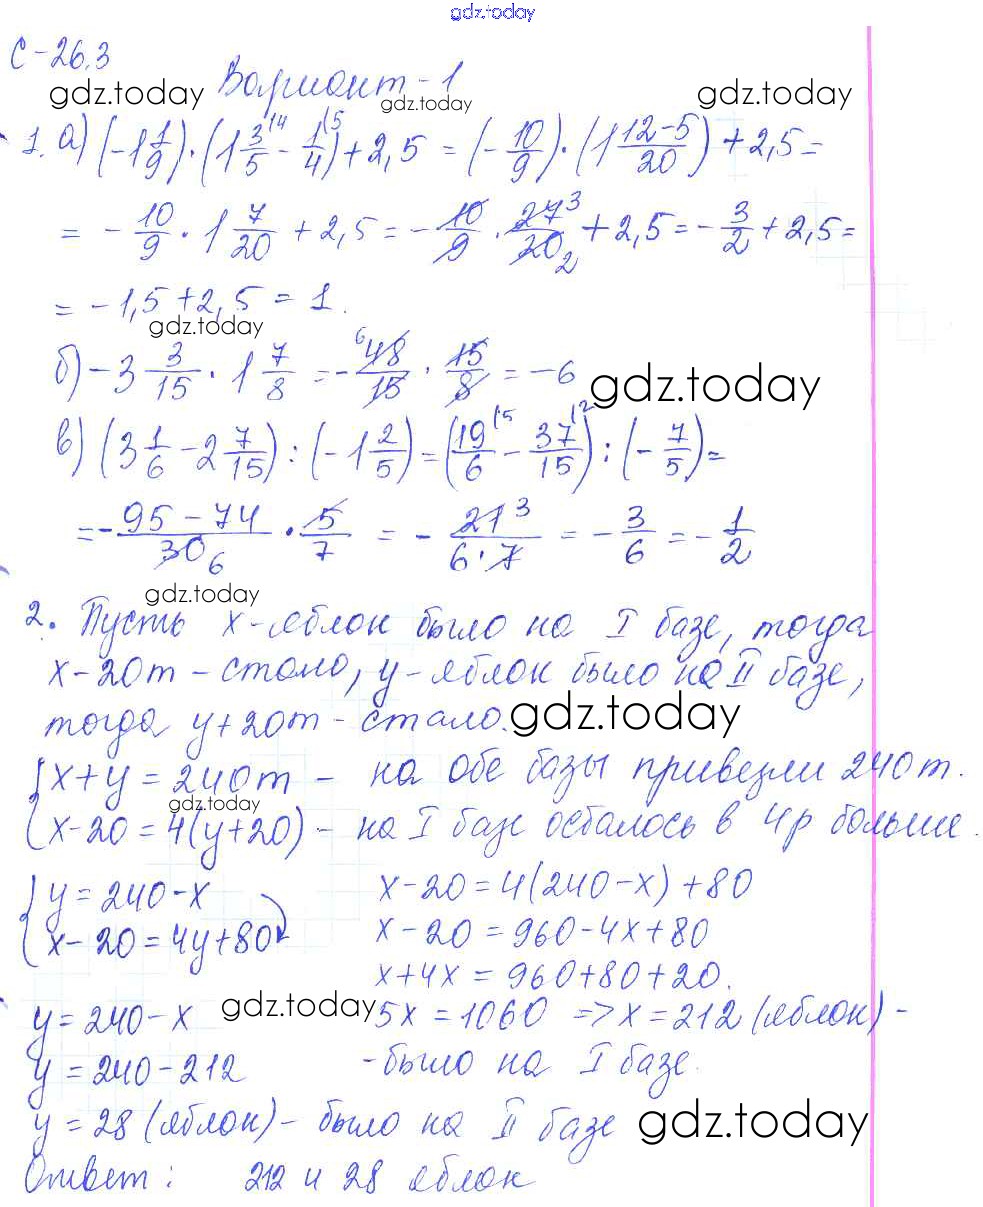 gdz.today
С-26.3
Вариант-1
gdz.today gdz.today gdz.today
1. а) (-1 1/9)·(1 3/5 - 1/4) + 2,5 = (-10/9)·(1 12-5/20) + 2,5 =
= - 10/9 · 1 7/20 + 2,5 = - 10/9 · 27/20 + 2,5 = - 3/2 + 2,5 =
= -1,5 + 2,5 = 1.
gdz.today
б) -3 3/15 · 1 7/8 = - 48/15 · 15/8 = -6
gdz.today
в) (3 1/6 - 2 7/15) : (-1 2/5) = (19/6 - 37/15) : (- 7/5) =
= - 95-74/30 · 5/7 = - 21/6·7 = - 3/6 = - 1/2
gdz.today
2. Пусть х-яблок было на I базе, тогда
х-20т - стало, у-яблок было на II базе,
тогда у+20т - стало.
gdz.today
{ х+у = 240т - на обе базы привезли 240т.
gdz.today
{ х-20 = 4(у+20) - на I базе осталось в 4р больше.
{ у = 240-х
х-20 = 4у+80
х-20 = 4(240-х)+80
х-20 = 960-4х+80
х+4х = 960+80+20.
у = 240-х gdz.today 5х = 1060 => х = 212 (яблок) -
у = 240-212 - было на I базе.
у = 28 (яблок) - было на II базе
gdz.today
Ответ: 212 и 28 яблок